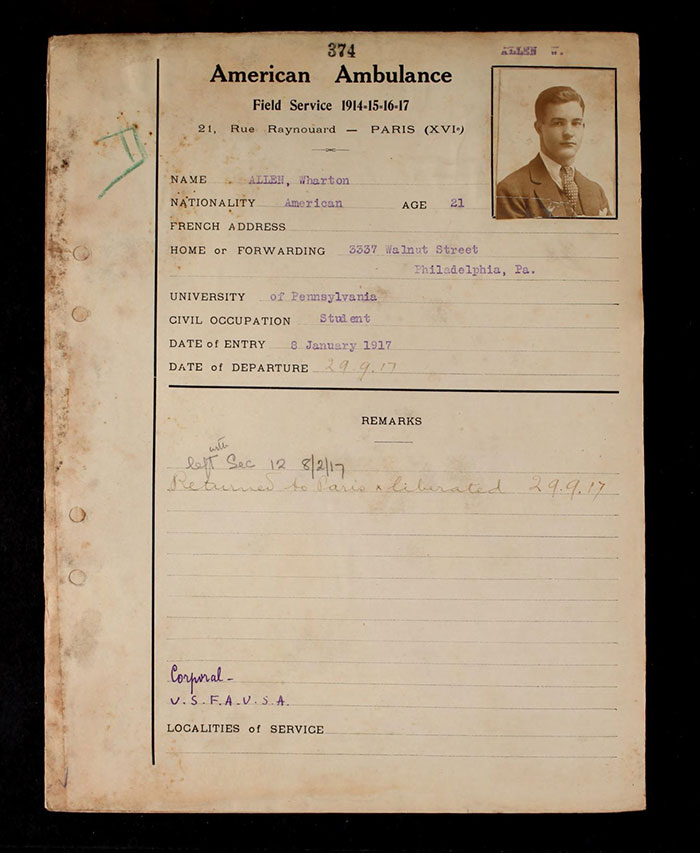 374
ALLEN W.
American Ambulance
Field Service 1914-15-16-17
21, Rue Raynouard — PARIS (XVIe)
NAME ALLEN, Wharton
NATIONALITY American AGE 21
FRENCH ADDRESS
HOME or FORWARDING 3337 Walnut Street
Philadelphia, Pa.
UNIVERSITY of Pennsylvania
CIVIL OCCUPATION Student
DATE of ENTRY 8 January 1917
DATE of DEPARTURE 29.9.17
REMARKS
with
left Sec 12 8/2/17
Returned to Paris & liberated 29.9.17
Corporal -
U.S.F.A.U.S.A.
LOCALITIES of SERVICE